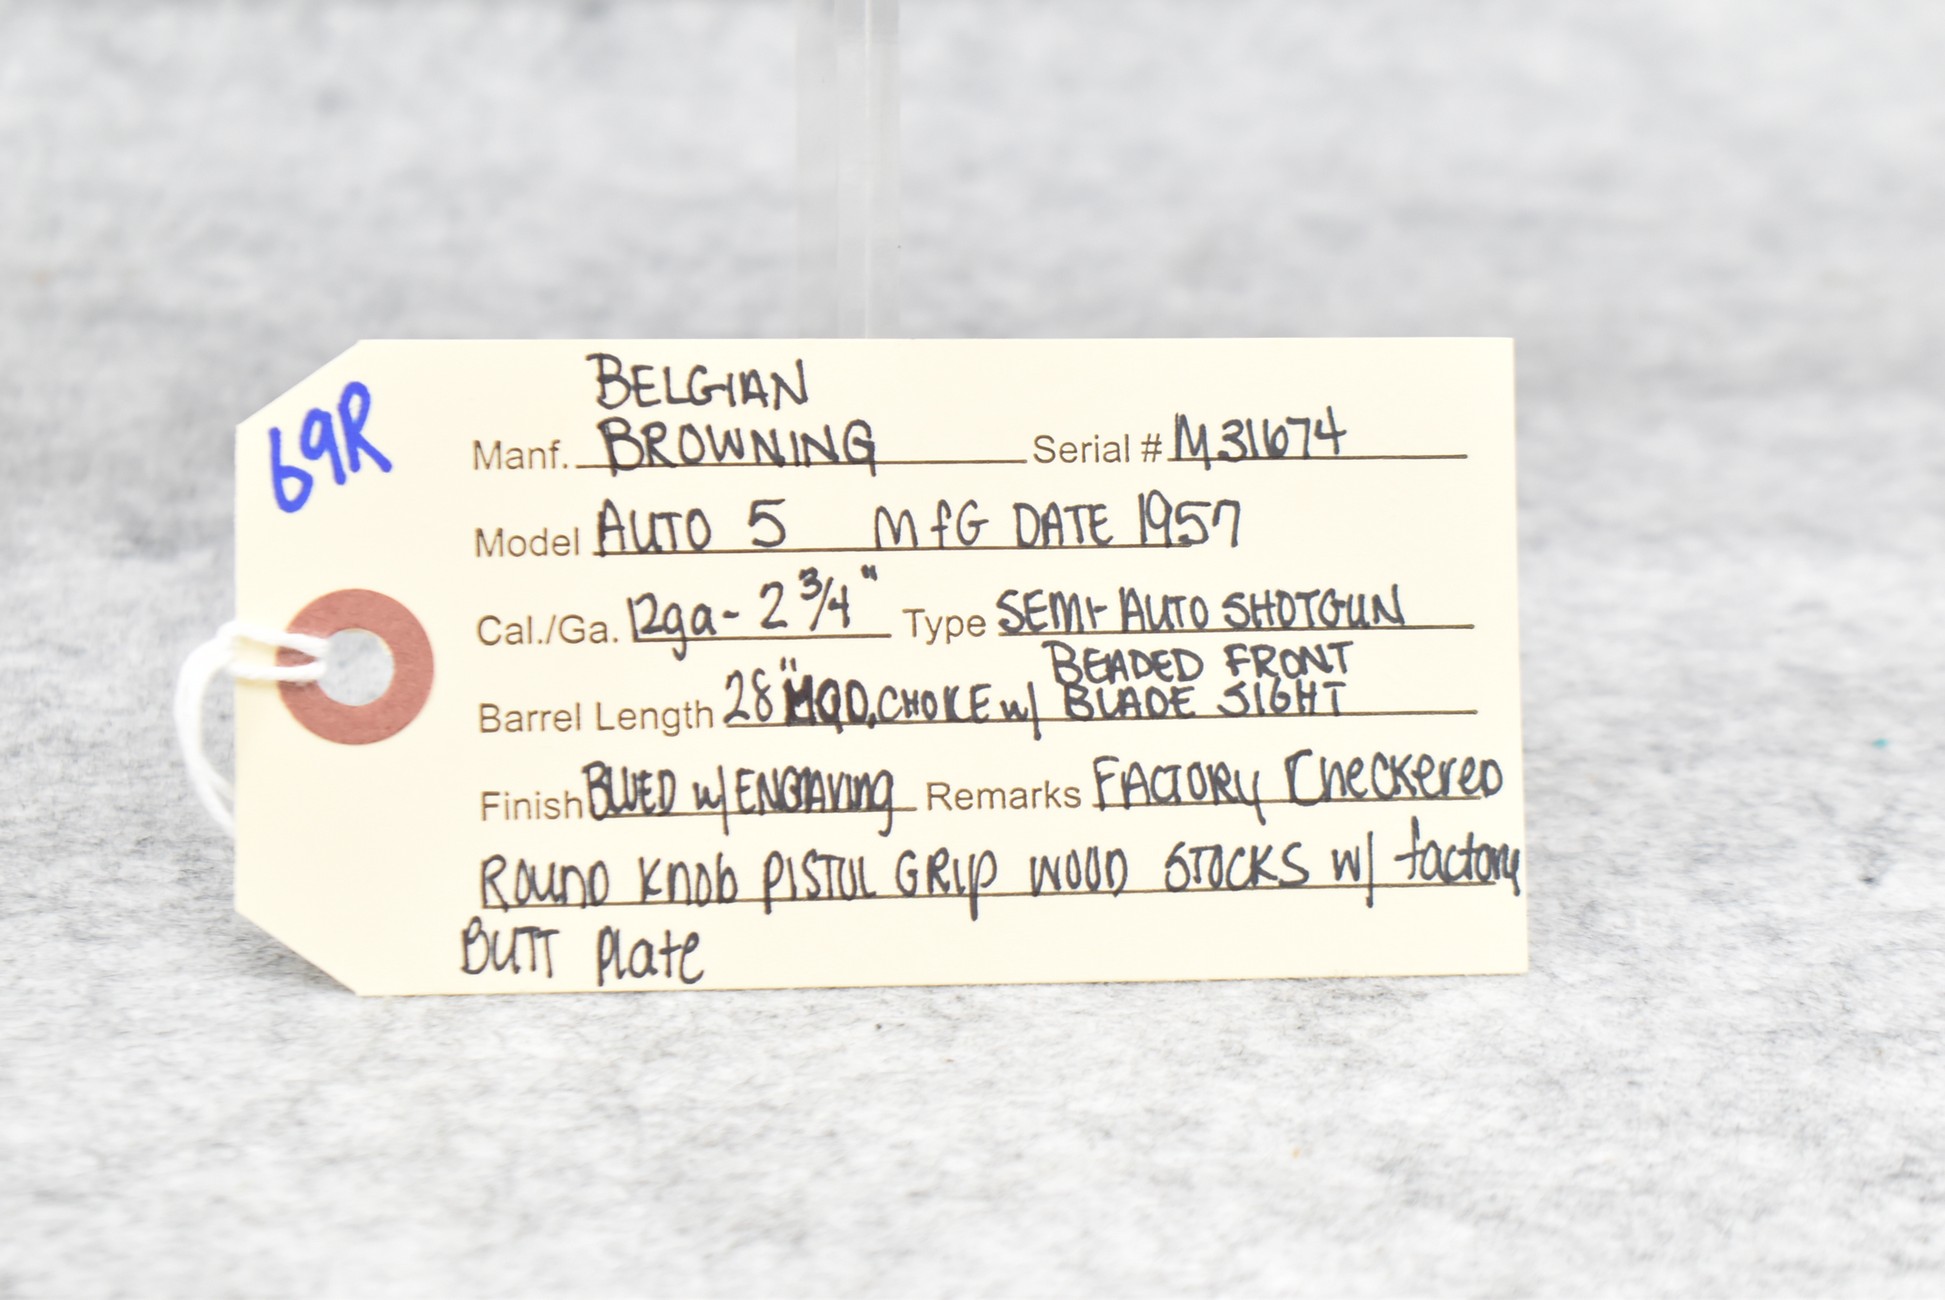 69R
BELGIAN
Manf. BROWNING Serial # M31674
Model AUTO 5 MfG DATE 1957
Cal./Ga. 12ga - 2 3/4" Type SEMI-AUTO SHOTGUN
BEADED FRONT
Barrel Length 28" MOD. CHOKE w/ BLADE SIGHT
Finish BLUED w/ ENGRAVING Remarks FACTORY Checkered
ROUND KNOB PISTOL GRIP WOOD STOCKS w/ factory
BUTT Plate